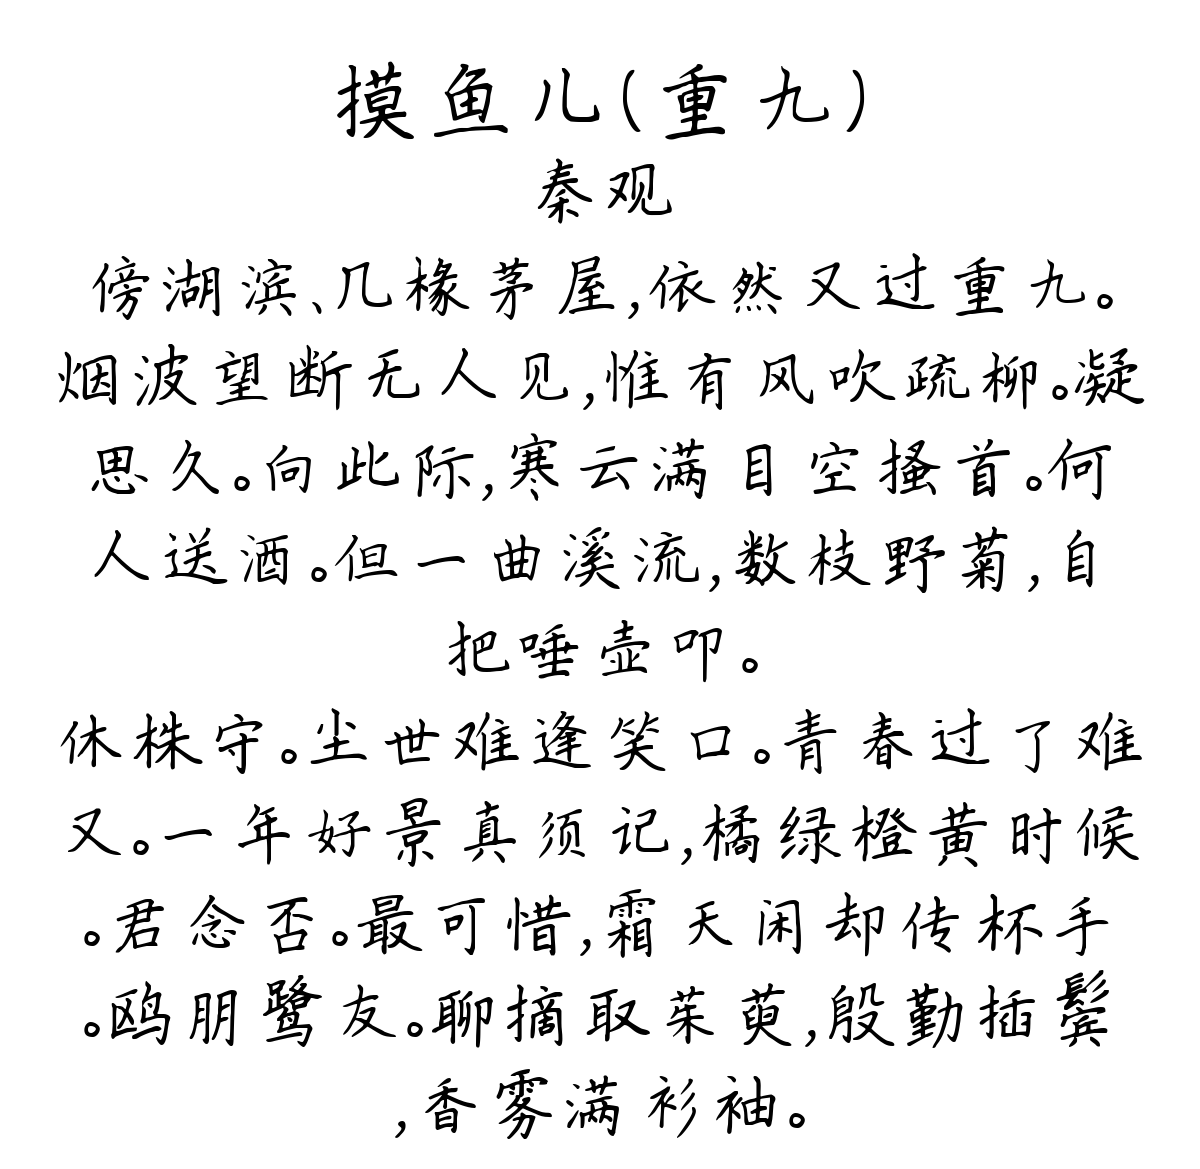 摸鱼儿(重九)
秦观
傍湖滨、几椽茅屋,依然又过重九。
烟波望断无人见,惟有风吹疏柳。凝
思久。向此际,寒云满目空搔首。何
人送酒。但一曲溪流,数枝野菊,自
把唾壶叩。
休株守。尘世难逢笑口。青春过了难
又。一年好景真须记,橘绿橙黄时候
。君念否。最可惜,霜天闲却传杯手
。鸥朋鹭友。聊摘取茱萸,殷勤插鬓
,香雾满衫袖。